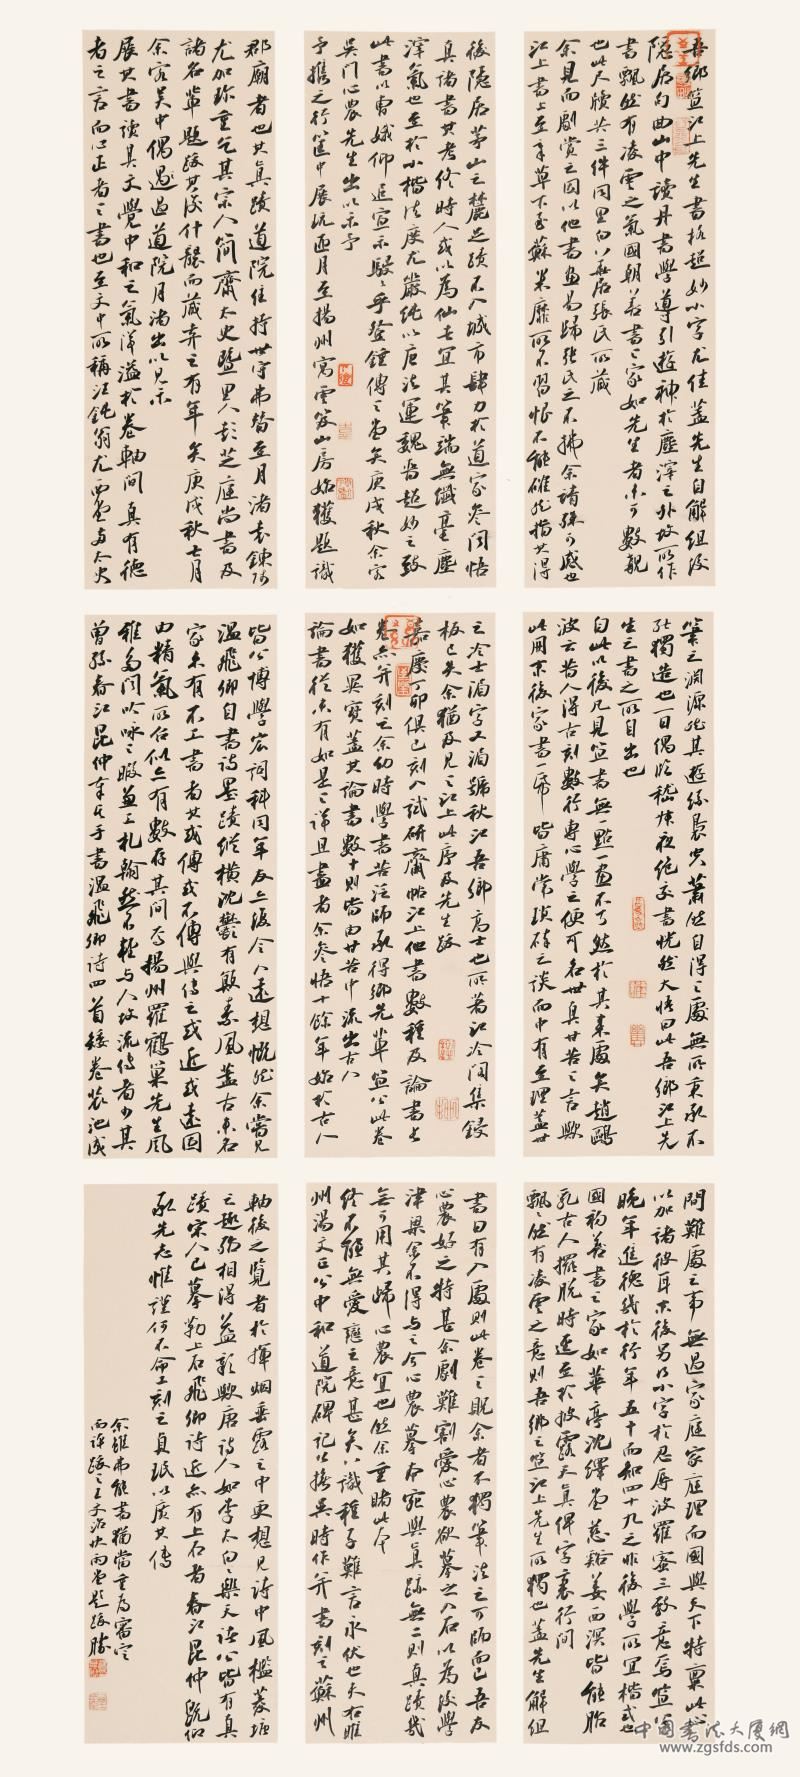 吾鄉笪江上先生書格超妙小字尤佳蓋先生自解組後
隱居句曲山中讀丹書學導引遊神於塵滓之外故所作
書飄然有凌雲之氣國朝善書之家如先生者未可數覯
也此尺牘共三件同里白華居張氏所藏
余見而劇賞之因以他書畫易歸張氏之不拂余請殊可感也
江上書上至章草下至蘇米靡所不習恨不能確然指其得
筆之淵源然其遊絲裊空蕭然自得之處無所秉承不
能獨造也一日偶臨嵇叔夜絕交書恍然大悟曰此吾鄉江上先
生之書之所自出也
自此以後凡見笪書無一點一畫不了然於其來處矣趙鷗
波云昔人得古刻數行專心學之便可名世真甘苦之言歟
此冊末後家書一帋皆庸常瑣碎之談而中有至理蓋世
間難處之事無過家庭家庭理而國與天下特稟此心
以加諸彼耳末後另作小字於忍辱波羅蜜三致意焉笪公
晚年進德幾於行年五十而知四十九之非後學所宜楷式也
國初善書之家如華亭沈繹堂慈谿姜西溟皆能胎
乳古人擺脫時逕至於披露天真俾字裏行間
飄飄然有凌雲之意則吾鄉之笪江上先生所獨也蓋先生解組
後隱居茅山之麓足跡不入城市肆力於道家參同悟
真諸書其考終時人或以為仙去宜其筆端無纖毫塵
滓氣也至於小楷法度尤嚴純以唐法運魏晉超妙之致
此書以曹娥仰追宣示駸駸乎登鍾傅之堂矣庚戌秋余客
吳門心農先生出以示予
予攜之行篋中展玩匝月至揚州寓雲笈山房始獲題識
之冷士湄字又湄號秋江吾鄉高士也所著江泠閣集鋟
板已失余猶及見之江上此序及先生跋
嘉慶丁卯俱已刻入試研齋帖江上他書數種及論書長
卷亦并刻之余幼時學書苦乏師承得鄉先輩笪公此卷
如獲異寶蓋其論書數十則皆由甘苦中流出古人
論書從未有如是之詳且盡者余參悟十餘年始於古人
書日有入處則此卷之貺余者不獨筆法之可師而已吾友
心農好之特甚余劇難割愛心農欲摹之入石以為後學
津梁余不得與之今心農摹本宛與真跡無二則真蹟幾
無可用其歸心農宜也然余重睹此本
終不能無愛癰之意甚矣八識種子難言永伏也夫右睢
州湯文正公中和道院碑記公撫吳時作并書刻之蘇州
郡廟者也其真蹟道院住持世守弗替至月渚袁鍊師
尤加珍重乞其宗人簡齋太史暨里人彭芝庭尚書及
諸名輩題跋其後什襲而藏弆之有年矣庚戌秋七月
余客吳中偶過過道院月渚出以見示
展其書讀其文覺中和之氣洋溢於卷軸間真有德
者之言而心正者之書也至文中所稱汪鈍翁尤西堂兩太史
皆公博學宏詞科同年友上後令人遠想慨然余嘗見
溫飛卿自書詩墨蹟縱橫沈鬱有敏素風蓋古來名
家未有不工書者其或傳或不傳與傳之或近或遠固
由精氣所召似亦有數存其間焉揚州羅鶴巢先生風
雅多聞吟咏之暇兼工札翰然不輕與人故流傳者少其
曾孫春江昆仲奉其手書溫飛卿詩四首矮卷裝池成
軸後之覽者於揮烟垂露之中更想見詩中風檻菱塘
之趣殆相得益彰歟唐詩人如李太白白樂天諸公皆有真
蹟宋人已摹勒上石飛卿詩近亦有上石者春江昆仲既仰
承先志惟謹何不命工刻之貞珉以廣其傳
余雖弗能書猶當重為審定
而詳跋之王文治快雨堂題跋 勝
中国书法大厦網
www.zgsfds.com